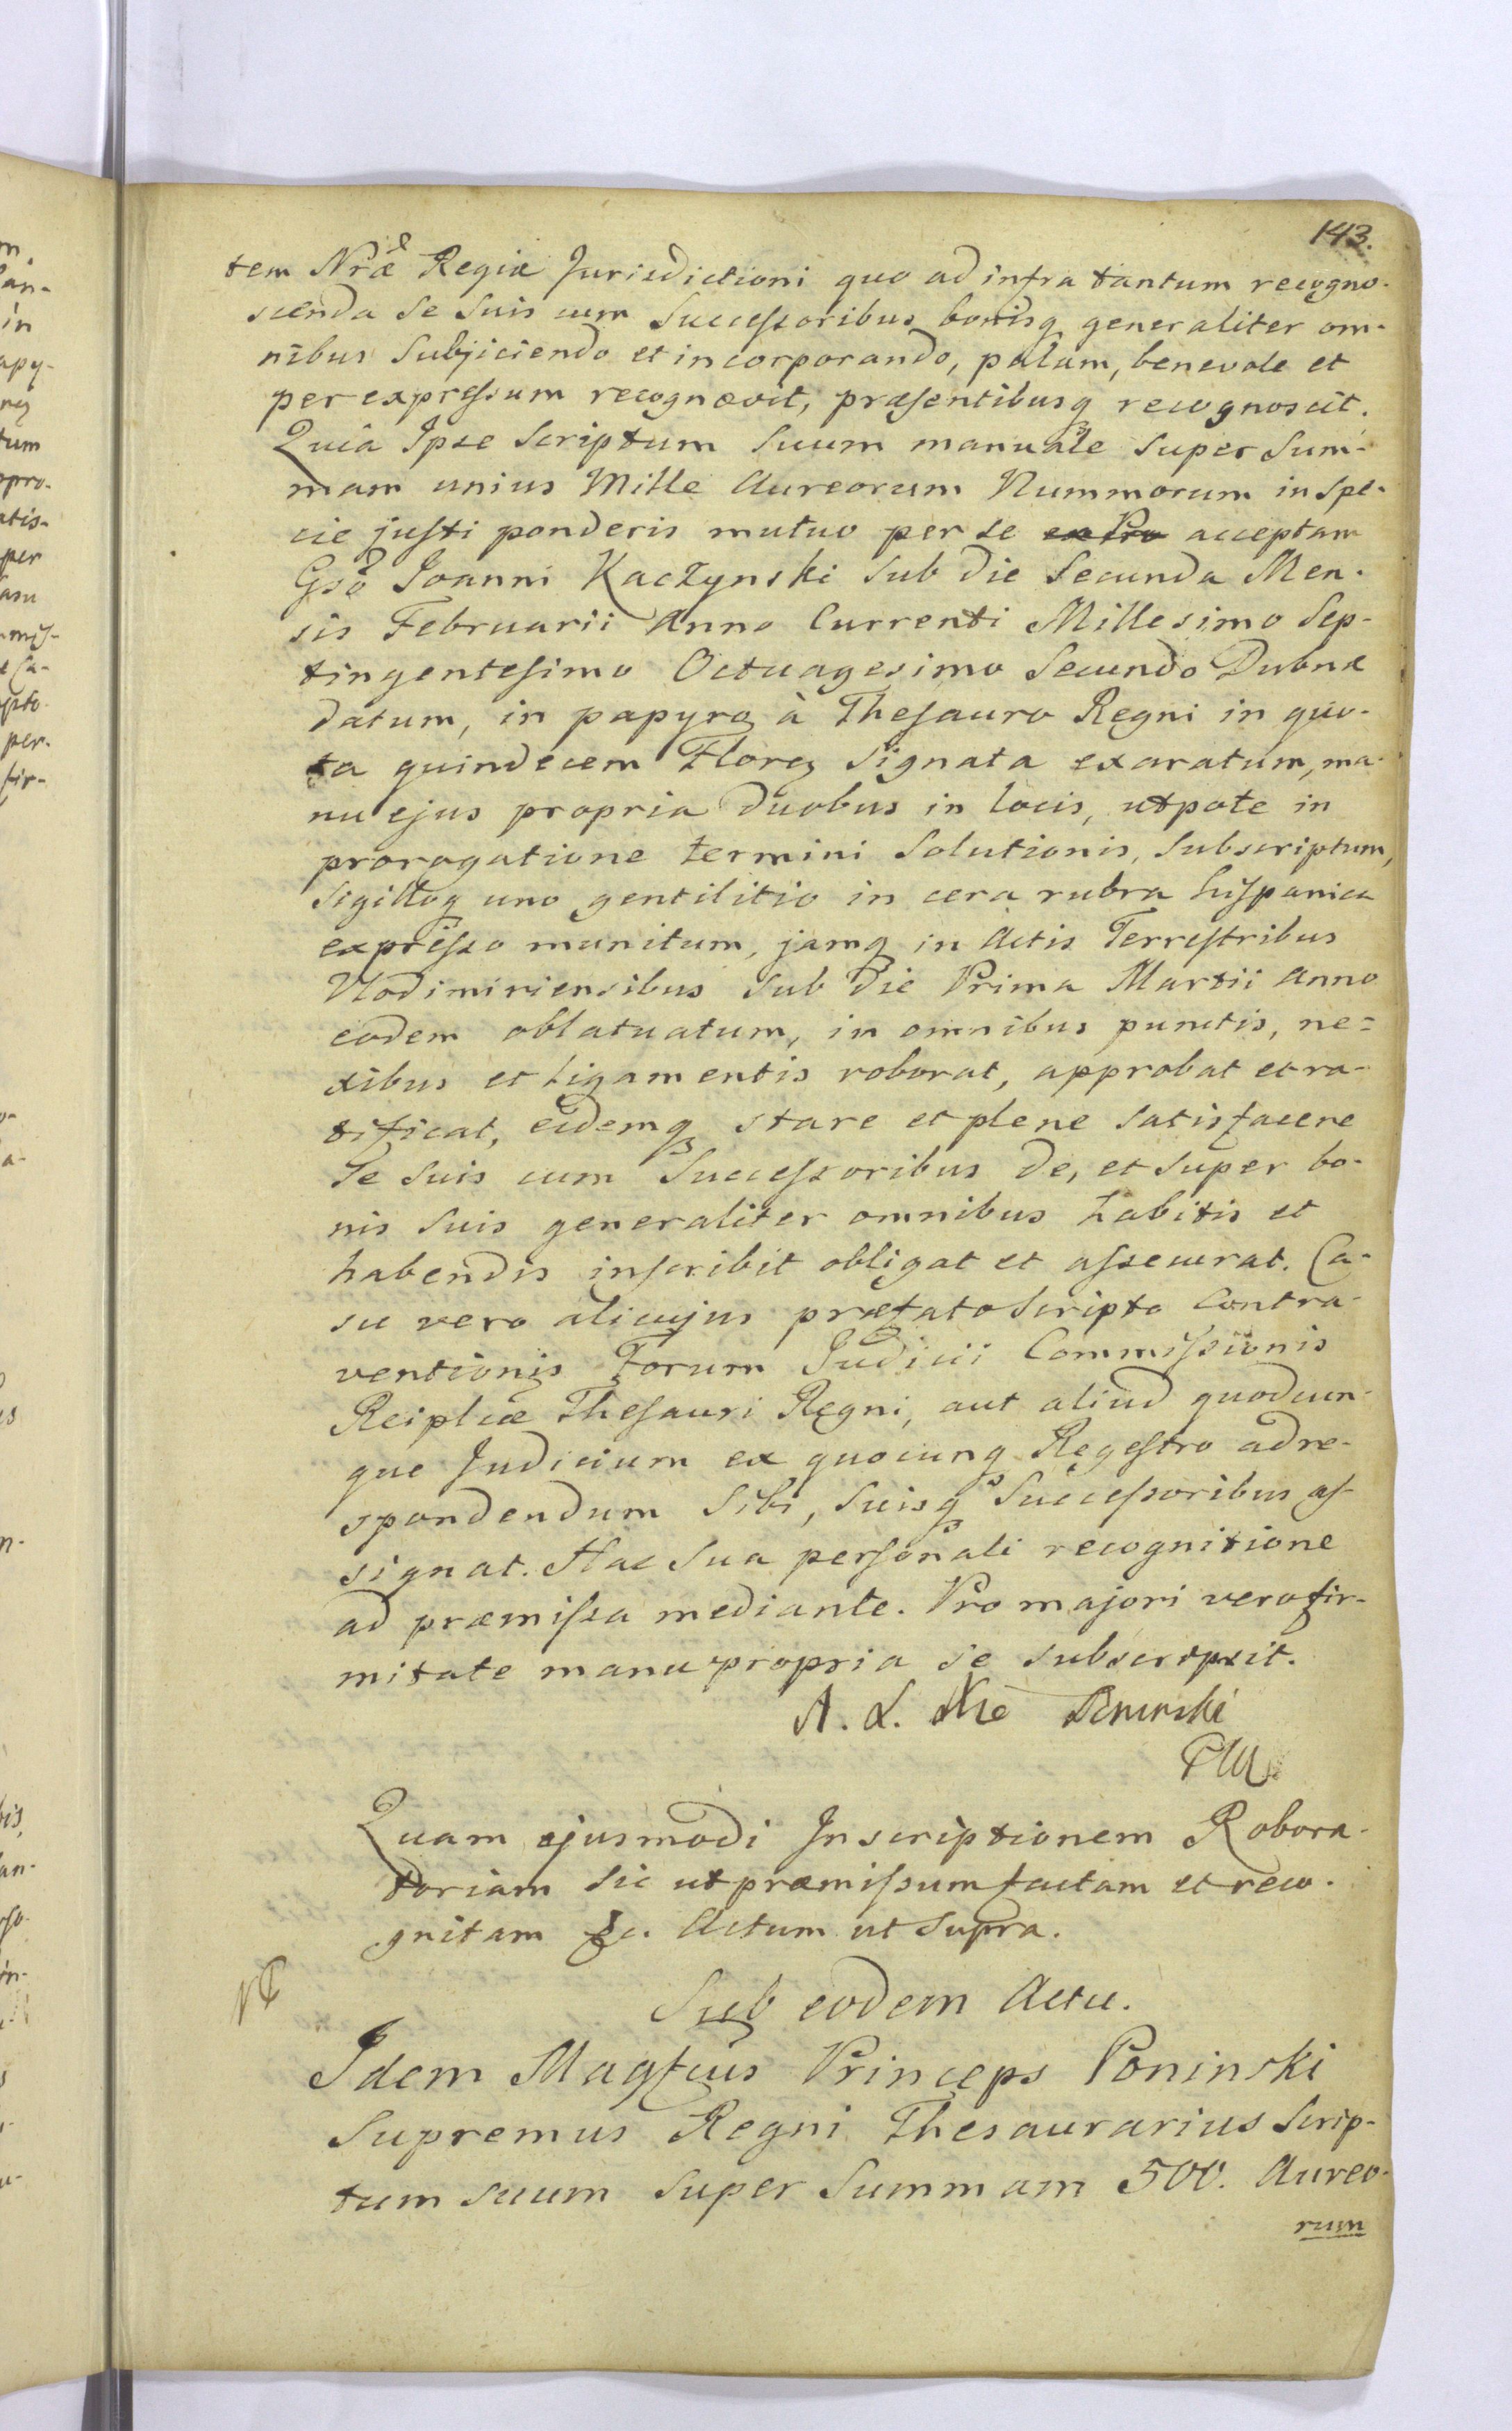 143.
tem Nræ Regiæ Jurisdictioni quo ad infra tantum recogno-
scenda se suis cum Successoribus bonisq generaliter om-
nibus subjiciendo et incorporando, palam, benevole et
per expressum recognovit, præsentibusq recognoscit.
Quia Ipse Scriptum suum manuale super Sum-
mam unius Mille Aureorum Nummorum in spe-
cie justi ponderis mutuo per se acceptam
Gsō Joanni Kaczynski sub die Secunda Men-
sis Februarii Anno Currenti Millesimo Sep-
tingentesimo Octuagesimo Secundo Dubnæ
datum, in papyro à Thesauro Regni in quo-
ta quindecem Floreg signata exaratum, ma-
nu ejus propria duobus in locis, utpote in
prorogatione termini solutionis, subscriptum,
sigilloq uno gentilitio in cera rubra hispanica
expresso munitum, jamq in Actis Terrestribus
Vlodimiriensibus sub die Prima Martii Anno
eodem oblatuatum, in omnibus punctis, ne=
xibus et ligamentis roborat, approbat et ra-
tificat, eidemq stare et plene satisfacere
se suis cum Successoribus de, et super bo-
nis suis generaliter omnibus habitis et
habendis inscribit obligat et assecurat. Ca-
su vero alicujus præfato Scripto Contra-
ventionis Forum Judicii Commissionis
Reiplicæ Thesauri Regni, aut aliud quodcun-
que Judicium ex quocunq Regestro ad re-
spondendum sibi, suisq Successoribus as-
signat. Hac sua personali recognitione
ad præmissa mediante. Pro majori vero fir-
mitate manu propria se subscripsit.
A. L. Xże Poninski
PWK
Quam ejusmodi Inscriptionem Robora-
toriam sic ut præmissum factam et reco-
gnitam &c. Actum ut supra.
Sub eodem Actu.
Idem Magfcus Princeps Poninski
Supremus Regni Thesaurarius Scrip-
tum suum super Summam 500. Aureo-
rum